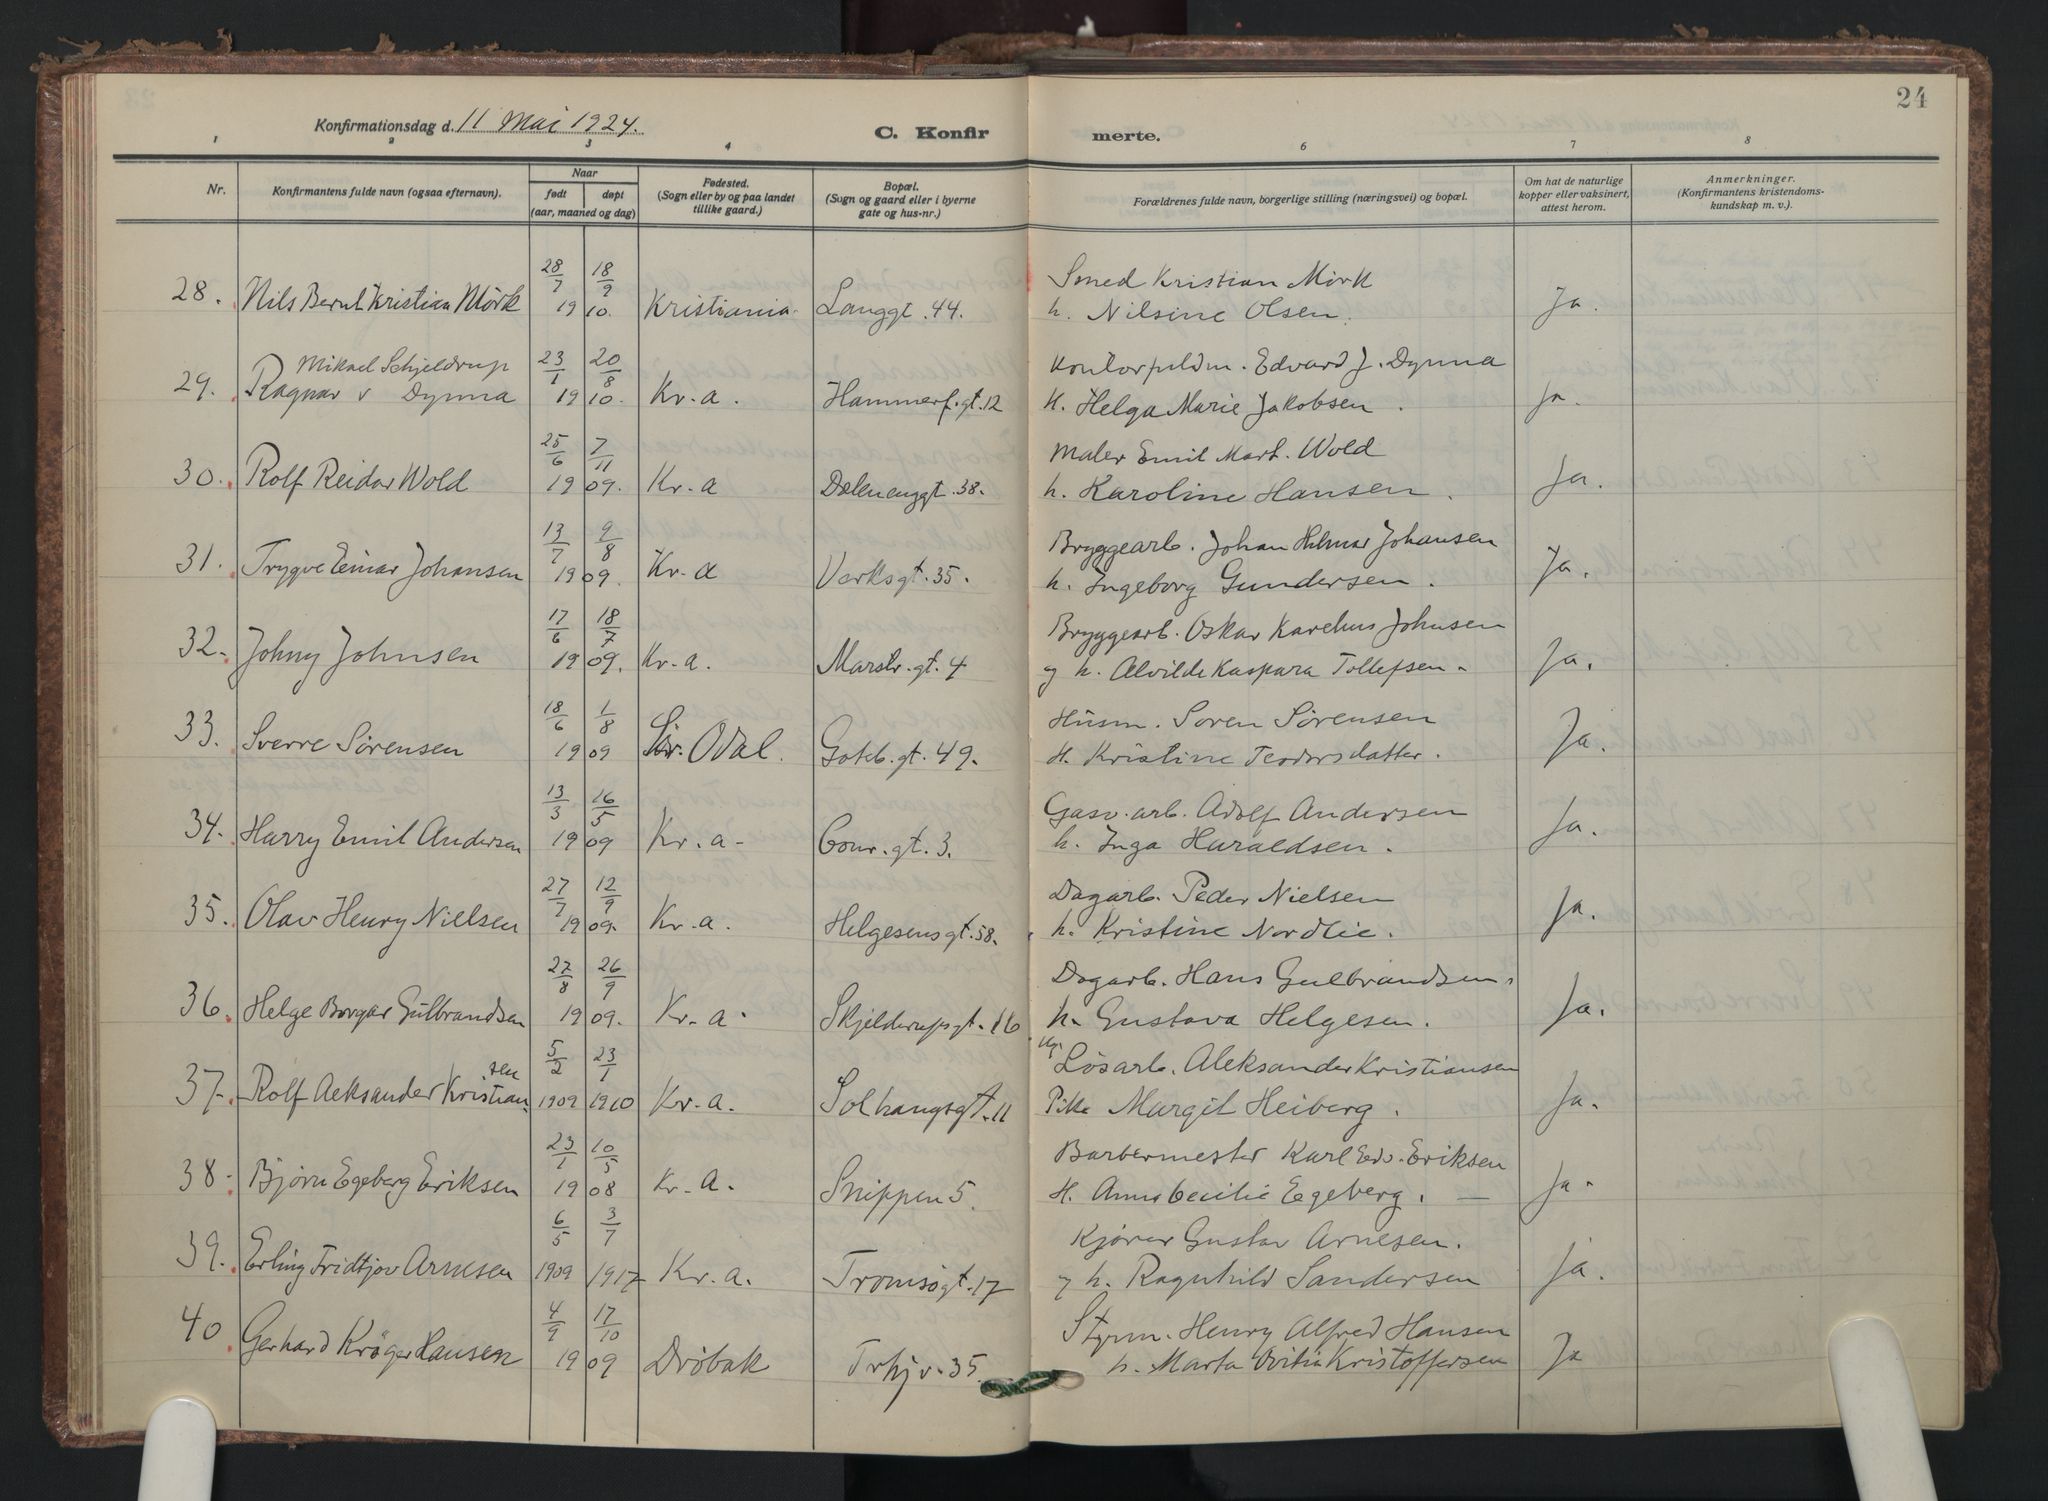 24
Konfirmationsdag d. 11 Mai 1924.
C. Konfirmerte.
1 2 3 4 6 7 8
Nr.
Konfirmantens fulde navn (ogsaa efternavn).
Naar
født døpt
(aar, maaned og dag)
Fødested.
(Sogn eller by og paa landet
tillike gaard.)
Bopæl.
(Sogn og gaard eller i byerne
gate og hus-nr.)
Forældrenes fulde navn, borgerlige stilling (næringsvei) og bopæl.
Om hat de naturlige
kopper eller vaksinert,
attest herom.
Anmerkninger.
(Konfirmantens kristendoms-
kundskap m. v.).
28/7 18/9 Smed Kristian Mörk
28. Nils Bernt Kristian Mörk 19 10. Kristiania. Langgt. 44. h. Nilsine Olsen. Ja.
Mikael Schjeldrup 23/1 20/8 Kontorfuldm. Edvard J. Dynna
29. Ragnar v Dynna 19 10. Kr.a. Hammerf.gt.12 H. Helga Marie Jakobsen. Ja.
25/6 7/11 Maler Emil Mart. Wold
30. Rolf Reidar Wold 19 09. Kr.a Dælenenggt.38. h. Karoline Hansen. Ja.
13/7 9/8 Bryggearb. Johan Hilmar Johansen
31. Trygve Einar Johansen 19 09. Kr.a Verksgt.35. h. Ingeborg Gundersen. Ja.
17/6 18/7 Bryggearb. Oskar Karelius Johnsen
32. Johny Johnsen 19 09. Kr.a. Marstr.gt.4 og h. Alvilde Kaspara Tollefsen. Ja.
18/6 1/8 Husm. Soren Sörensen
33. Sverre Sörensen 19 09 Sör. Odal. Goteb.gt.49. H. Kristine Teodorsdatter. Ja.
13/3 16/5 Gasv.arb. Adolf Andersen
34. Harry Emil Andersen 19 09 Kr.a- Conr.gt.3. h. Inga Haraldsen. Ja.
27/7 12/9 Dagarb. Peder Nielsen
35. Olav Henry Nielsen 19 09. Kr.a. Helgesensgt.58. h. Kristine Nordlie. Ja.
27/8 26/9 Dagarb. Hans Gulbrandsen.
36. Helge Borgar Gulbrandsen 19 09. Kr.a. Skjelderupsgt.16 h. Gustava Helgesen. Ja.
sen 5/2 23/1 Ug. Lösarb. Aleksander Kristiansen
37. Rolf Aeksander Kristian 1909 1910 Kr.a. Solhaugsgt.11 Pike Margit Heiberg. Ja.
23/1 10/5 Barbermester Karl Edv. Eriksen
38- Björn Egeberg Eriksen 19 08 Kr.a. Snippen 5. H. Anna Cecilie Egeberg. — Ja.
6/5 3/7 Kjörer Gustav Arnesen.
39. Erling Fridtjov Arnesen 1909 1917 Kr.a. Tromsögt.17 og h. Ragnhild Sandersen Ja.
4/9 17/10 Styrm. Henry Alfred Hansen
40 Gerhard Kröger Hansen 19 09 Dröbak Trhjv.35. h. Marta Kristoffersen Ja